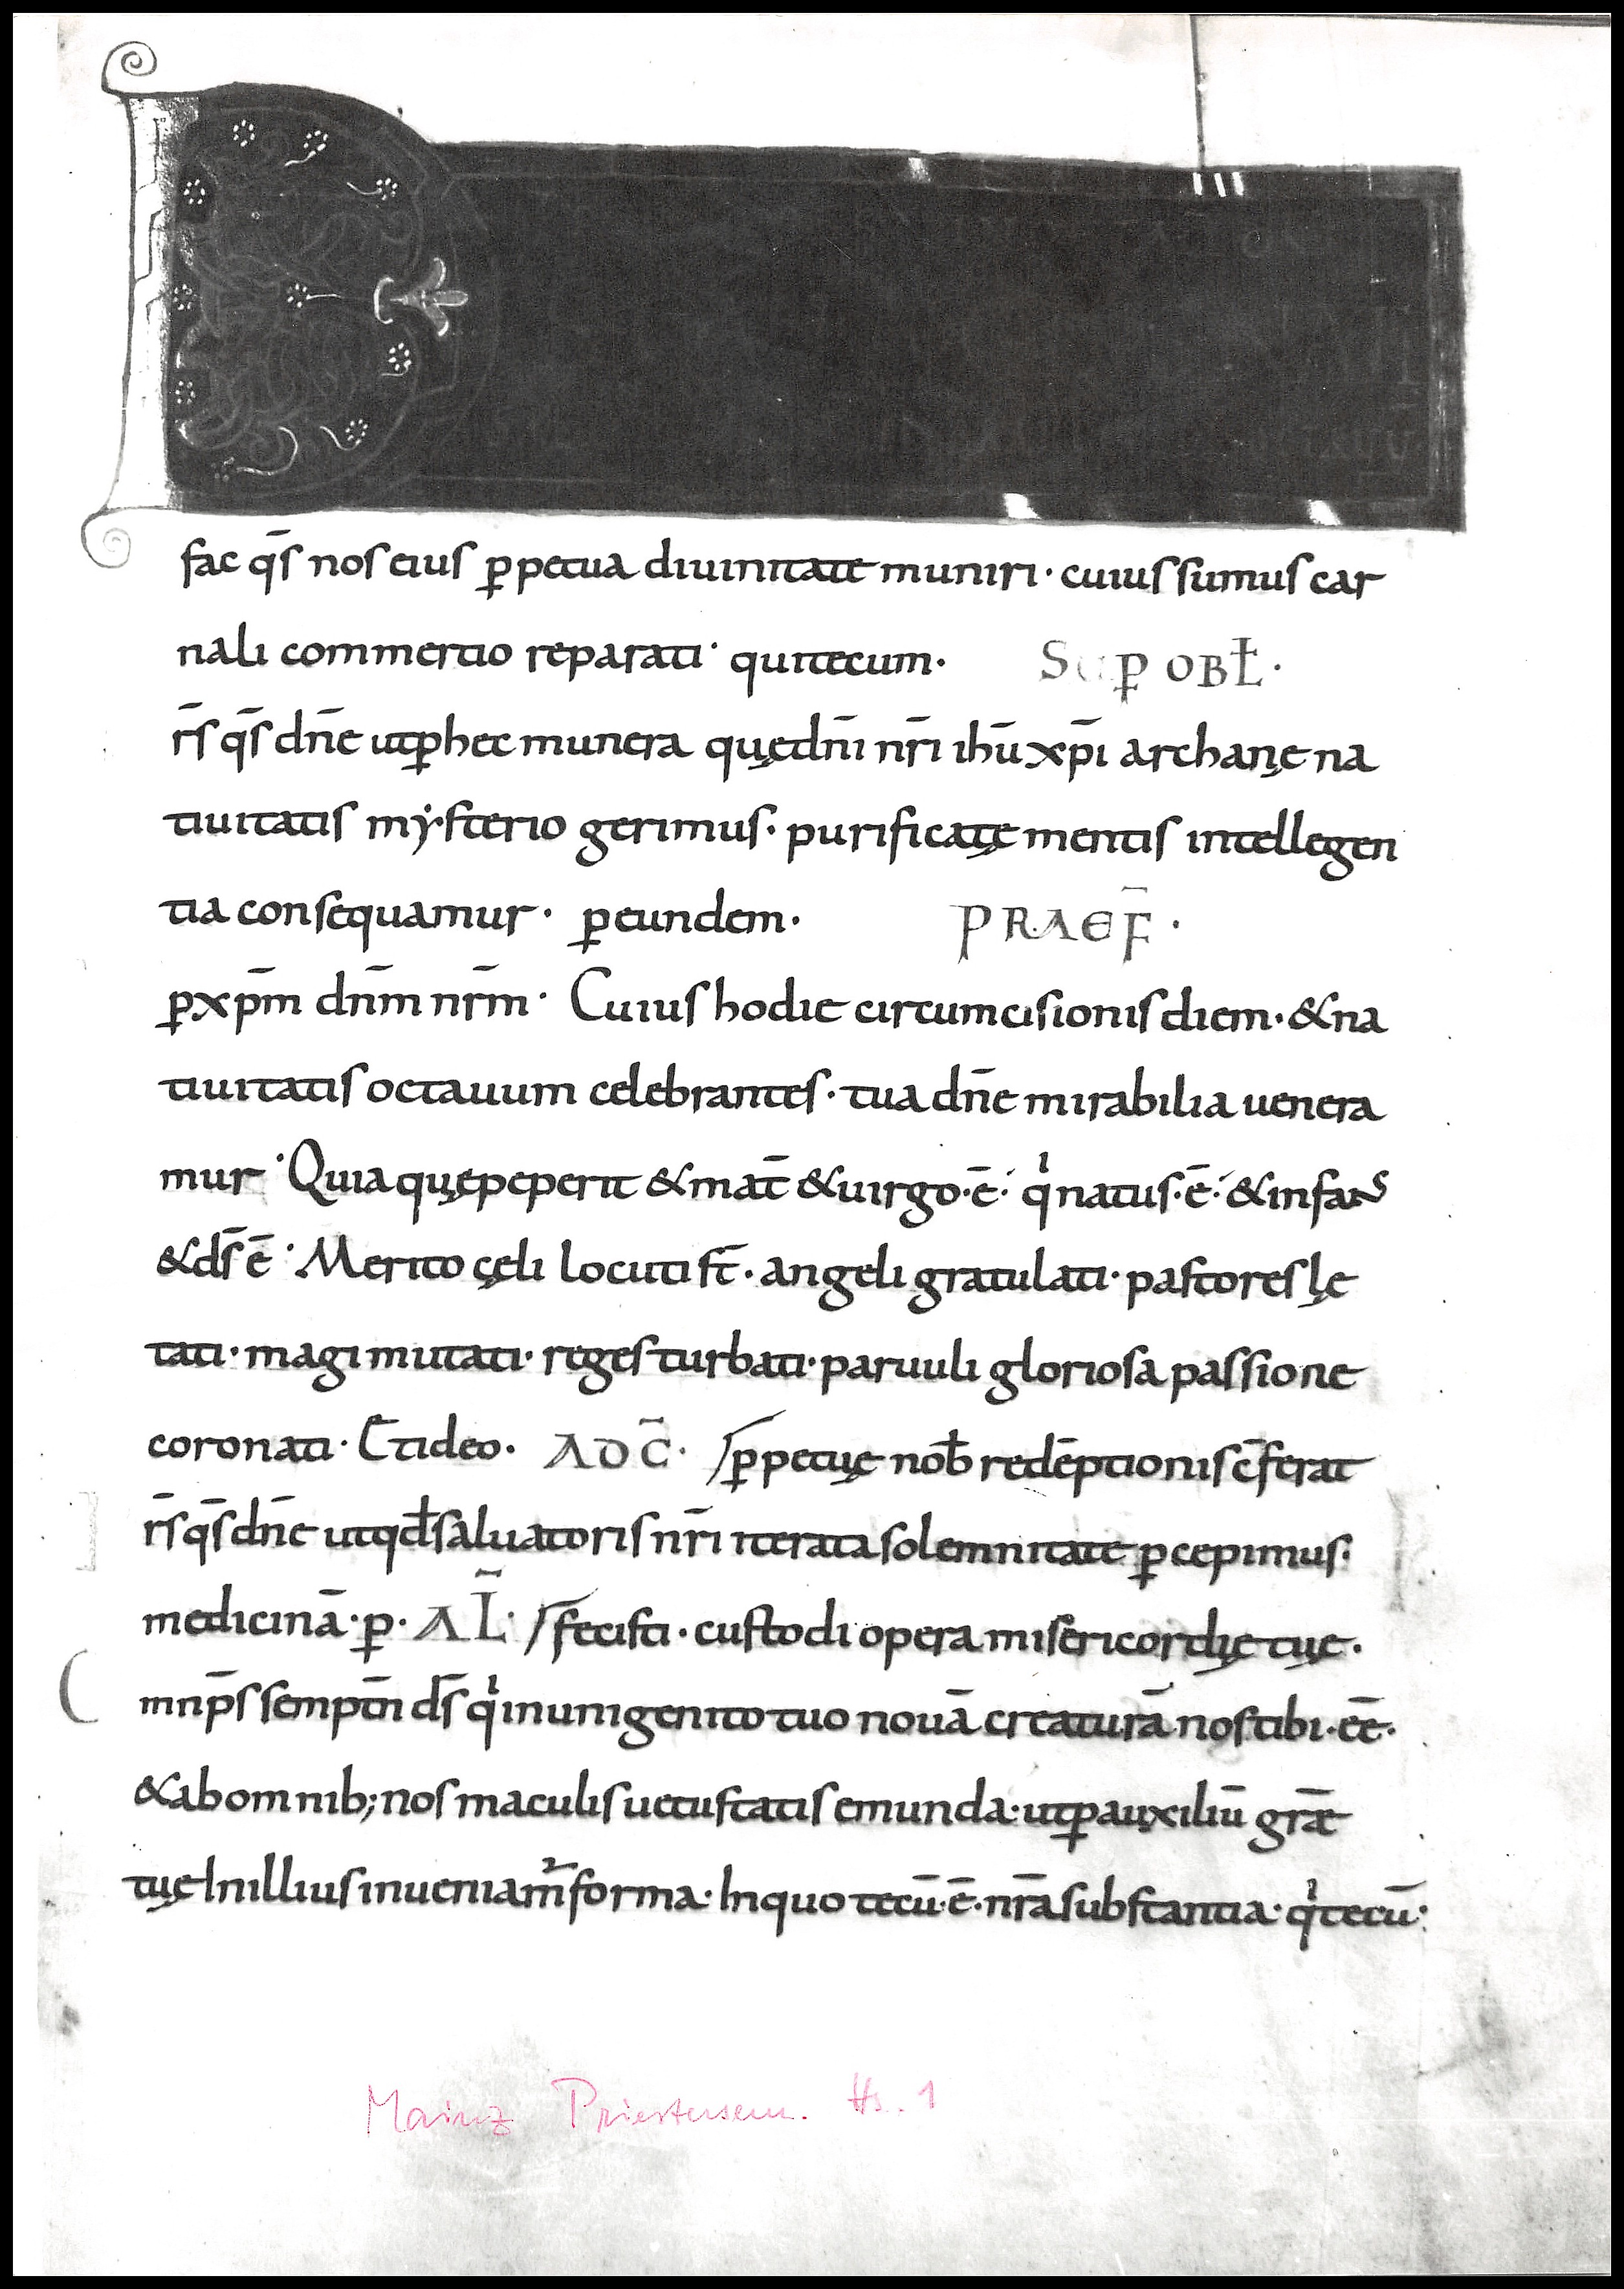 fac qs̄ nos eius ꝑpetua diuinitate muniri · cuius sumus car
nali commertio reparati · qui tecum ·   SUꝐ OBŁ ·
r̄s qs̄ dn̄e ut ꝑ hec munera quę dn̄i nr̄i ihū xp̄i archanę na
tiuitatis mẏsterio gerimus · purificatę mentis intellegen
tia consequamur · ꝑ eundem ·   PRAEF̄ ·
ꝑ xp̄m dn̄m nr̄m · Cuius hodie circumcisionis diem · & na
tiuitatis octauum celebrantes · tua dn̄e mirabilia uenera
mur · Quia quę peperit & mat̄ & uirgo · ē · qi̇ natus · ē · & infans
& ds̄ ē · Merito cęli locuti st̄ · angeli gratulati · pastores lę
tati · magi mutati · reges turbati · paruuli gloriosa passione
coronati · Et ideo ·   AD C̄ ·   / ꝑpetuę nob̄ redēptionis c̄ferat
r̄s qs̄ dn̄e ut qd̄ saluatoris nr̄i iterata solemnitate ꝑcepimus ·
medicinā · ꝑ ·   AL̄ ·   / fecisti · custodi opera misericordię tuę ·
mnp̄s sempt̄n ds̄ qi̇ in unigenito tuo nouā creaturā nos tibi · ēē ·
& ab omnib; nos maculis uetustatis emunda · ut ꝑ auxiliū grǣ
tuę In illius inueniam̄ forma · In quo tecū · ē · nr̄a substantia · qi̇ tecū ·
Mainz Priestersem. Hs. 1